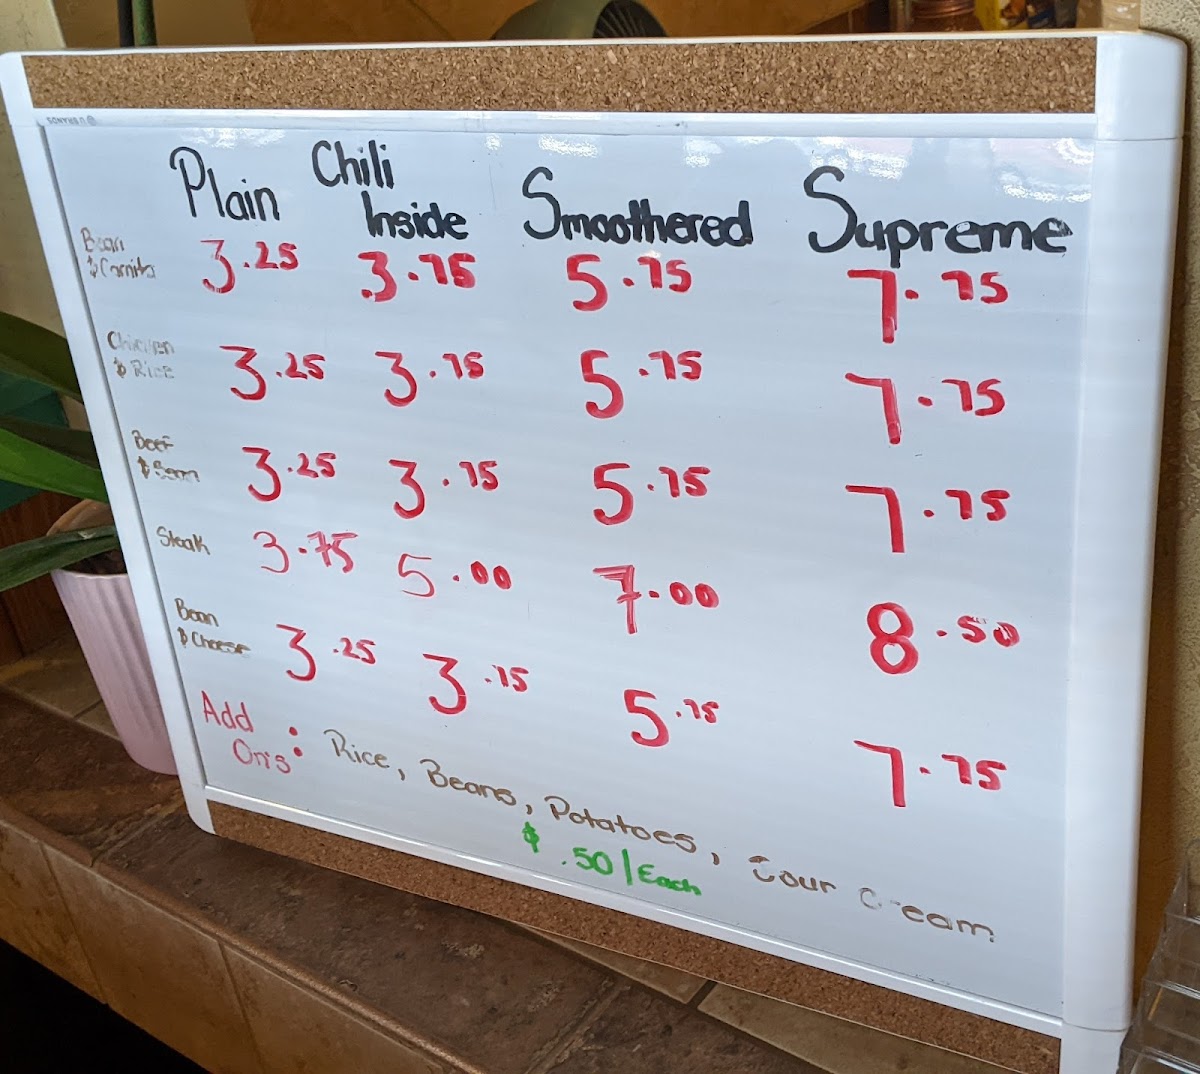 Plain Chili Inside Smoothered Supreme
Bean & Carnita 3.25 3.75 5.75 7.75
Chicken & Rice 3.25 3.75 5.75 7.75
Beef & Bean 3.25 3.75 5.75 7.75
Steak 3.75 5.00 7.00 8.50
Bean & Cheese 3.25 3.75 5.75 7.75
Add On's: Rice, Beans, Potatoes, Sour Cream
$ .50/Each